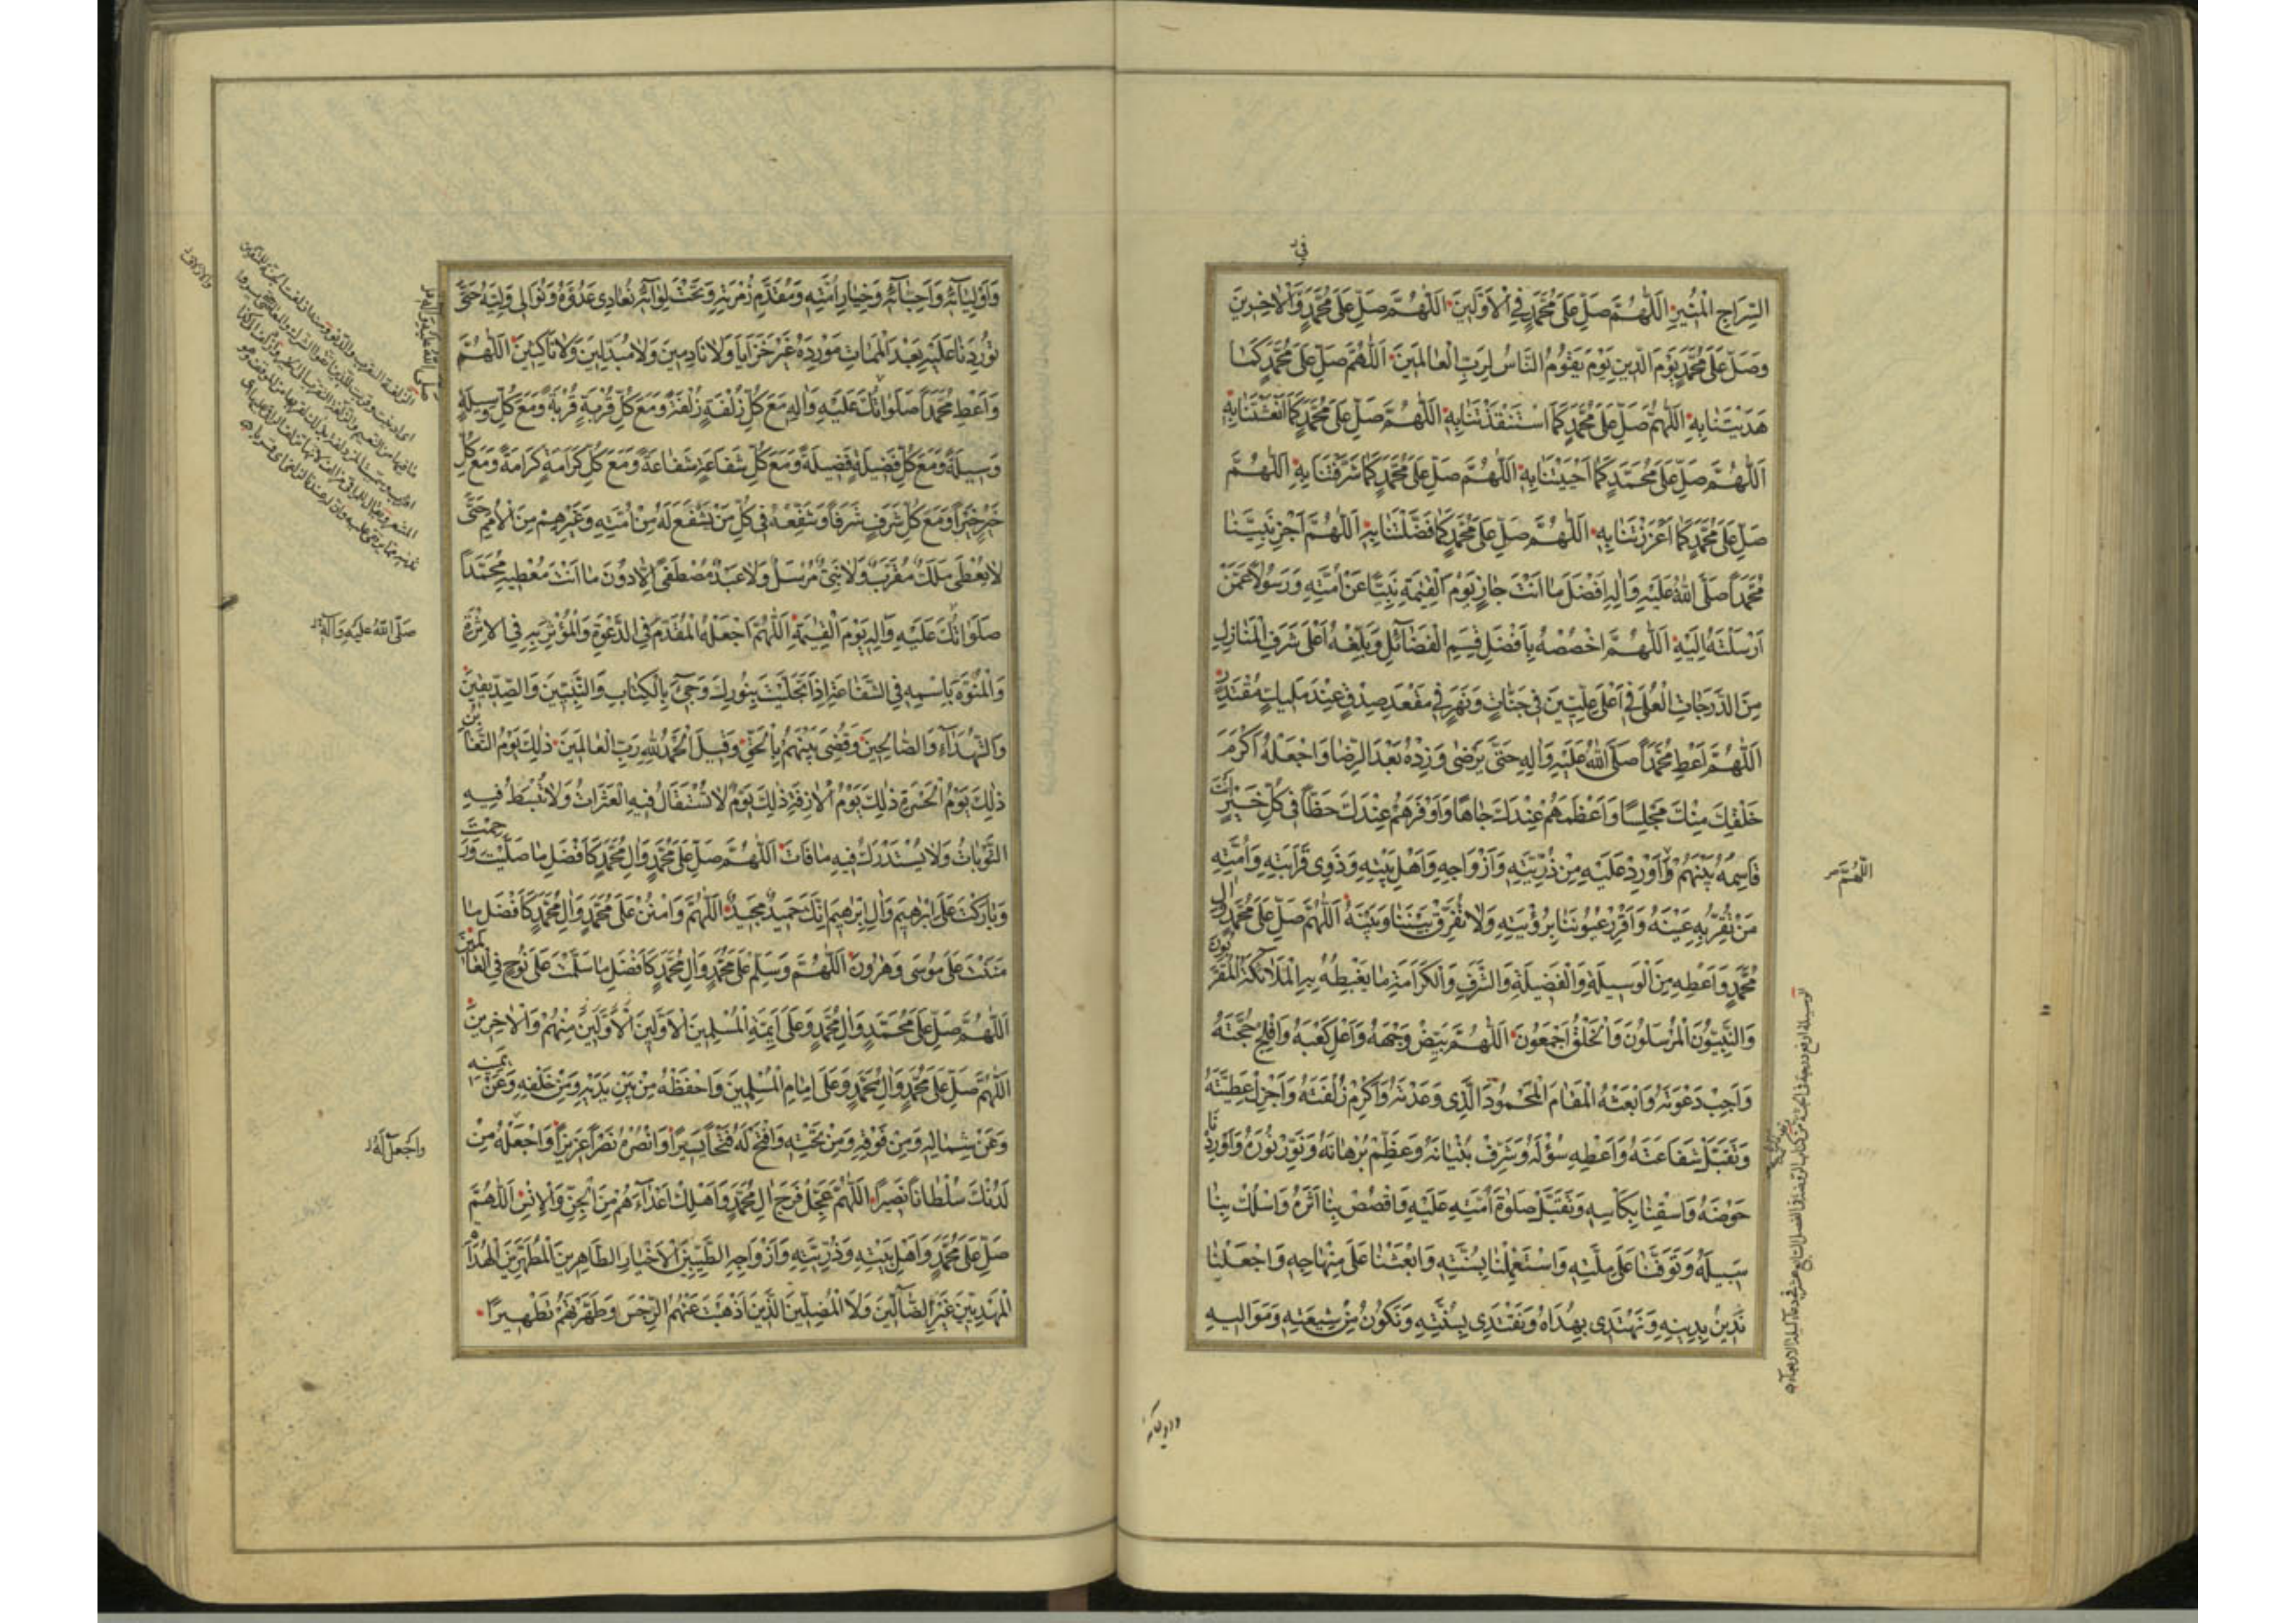 في
السِّرَاجِ الْمُنِيرِ اَللّٰهُمَّ صَلِّ عَلَى مُحَمَّدٍ فِي الْاَوَّلِينَ اَللّٰهُمَّ صَلِّ عَلَى مُحَمَّدٍ وَالْاٰخِرِينَ
وَصَلِّ عَلَى مُحَمَّدٍ يَوْمَ الدِّينِ يَوْمَ يَقُومُ النَّاسُ لِرَبِّ الْعَالَمِينَ اَللّٰهُمَّ صَلِّ عَلَى مُحَمَّدٍ كَمَا
هَدَيْتَنَا بِهِ اَللّٰهُمَّ صَلِّ عَلَى مُحَمَّدٍ كَمَا اسْتَنْقَذْتَنَا بِهِ اَللّٰهُمَّ صَلِّ عَلَى مُحَمَّدٍ كَمَا اَنْعَشْتَنَا بِهِ
اَللّٰهُمَّ صَلِّ عَلَى مُحَمَّدٍ كَمَا اَحْيَيْتَنَا بِهِ اَللّٰهُمَّ صَلِّ عَلَى مُحَمَّدٍ كَمَا شَرَّفْتَنَا بِهِ اَللّٰهُمَّ
صَلِّ عَلَى مُحَمَّدٍ كَمَا اَعْزَزْتَنَا بِهِ اَللّٰهُمَّ صَلِّ عَلَى مُحَمَّدٍ كَمَا فَضَّلْتَنَا بِهِ اَللّٰهُمَّ اَجْزِ نَبِيَّنَا
مُحَمَّدًا صَلَّى اللّٰهُ عَلَيْهِ وَاٰلِهِ اَفْضَلَ مَا اَنْتَ جَازٍ يَوْمَ الْقِيٰمَةِ نَبِيًّا عَنْ اُمَّتِهِ وَرَسُولًا عَمَّنْ
اَرْسَلْتَهُ اِلَيْهِ اَللّٰهُمَّ اخْصُصْهُ بِاَفْضَلِ قِسَمِ الْفَضَائِلِ وَبَلِّغْهُ اَعْلَى شَرَفِ الْمَنَازِلِ
مِنَ الدَّرَجَاتِ الْعُلَى فِي اَعْلَى عِلِّيِّينَ فِي جَنَّاتٍ وَنَهَرٍ فِي مَقْعَدِ صِدْقٍ عِنْدَ مَلِيكٍ مُقْتَدِرٍ
اَللّٰهُمَّ اَعْطِ مُحَمَّدًا صَلَّى اللّٰهُ عَلَيْهِ وَاٰلِهِ حَتَّى يَرْضَى وَزِدْهُ بَعْدَ الرِّضَا وَاجْعَلْهُ اَكْرَمَ
خَلْقِكَ مِنْكَ مَجْلِسًا وَاَعْظَمَهُمْ عِنْدَكَ جَاهًا وَاَوْفَرَهُمْ عِنْدَكَ حَظًّا فِي كُلِّ خَيْرٍ اَنْتَ
قَاسِمُهُ بَيْنَهُمْ وَاَوْرِدْ عَلَيْهِ مِنْ ذُرِّيَّتِهِ وَاَزْوَاجِهِ وَاَهْلِ بَيْتِهِ وَذَوِي قَرَابَتِهِ وَاُمَّتِهِ
اَللّٰهُمَّ
مَنْ تُقِرُّ بِهِ عَيْنَهُ وَاَقْرِرْ عُيُونَنَا بِرُؤْيَتِهِ وَلَا تُفَرِّقْ بَيْنَنَا وَبَيْنَهُ اَللّٰهُمَّ صَلِّ عَلَى مُحَمَّدٍ وَاٰلِ
مُحَمَّدٍ وَاَعْطِهِ مِنَ الْوَسِيلَةِ وَالْفَضِيلَةِ وَالشَّرَفِ وَالْكَرَامَةِ مَا يَغْبِطُهُ بِهِ الْمَلَائِكَةُ الْمُقَرَّبُونَ
وَالنَّبِيُّونَ الْمُرْسَلُونَ وَالْخَلْقُ اَجْمَعُونَ اَللّٰهُمَّ بَيِّضْ وَجْهَهُ وَاَعْلِ كَعْبَهُ وَاَفْلِجْ حُجَّتَهُ
وَاَجِبْ دَعْوَتَهُ وَابْعَثْهُ الْمَقَامَ الْمَحْمُودَ الَّذِي وَعَدْتَهُ وَاَكْرِمْ زُلْفَتَهُ وَاَجْزِلْ عَطِيَّتَهُ
وَتَقَبَّلْ شَفَاعَتَهُ وَاَعْطِهِ سُؤْلَهُ وَشَرِّفْ بُنْيَانَهُ وَعَظِّمْ بُرْهَانَهُ وَنَوِّرْ نُورَهُ وَاَوْرِدْنَا
حَوْضَهُ وَاسْقِنَا بِكَاْسِهِ وَتَقَبَّلْ صَلٰوةَ اُمَّتِهِ عَلَيْهِ وَاقْصُصْ بِنَا اَثَرَهُ وَاسْلُكْ بِنَا
سَبِيلَهُ وَتَوَفَّنَا عَلَى مِلَّتِهِ وَاسْتَعْمِلْنَا بِسُنَّتِهِ وَابْعَثْنَا عَلَى مِنْهَاجِهِ وَاجْعَلْنَا
نَدِينُ بِدِينِهِ وَنَهْتَدِي بِهُدَاهُ وَنَقْتَدِي بِسُنَّتِهِ وَنَكُونُ مِنْ شِيعَتِهِ وَمَوَالِيهِ
وَاَوْلِيَائِهِ وَاَحِبَّائِهِ وَخِيَارِ اُمَّتِهِ وَمُقَدَّمِ زُمْرَتِهِ وَتَحْتَ لِوَائِهِ نُعَادِي عَدُوَّهُ وَنُوَالِي وَلِيَّهُ حَتَّى
تُورِدَنَا عَلَيْهِ بَعْدَ الْمَمَاتِ مَوْرِدَهُ غَيْرَ خَزَايَا وَلَا نَادِمِينَ وَلَا مُبَدِّلِينَ وَلَا نَاكِثِينَ اَللّٰهُمَّ
وَاَعْطِ مُحَمَّدًا صَلَوَاتُكَ عَلَيْهِ وَاٰلِهِ مَعَ كُلِّ زُلْفَةٍ زُلْفَةً وَمَعَ كُلِّ قُرْبَةٍ قُرْبَةً وَمَعَ كُلِّ وَسِيلَةٍ
وَسِيلَةً وَمَعَ كُلِّ فَضِيلَةٍ فَضِيلَةً وَمَعَ كُلِّ شَفَاعَةٍ شَفَاعَةً وَمَعَ كُلِّ كَرَامَةٍ كَرَامَةً وَمَعَ كُلِّ
خَيْرٍ خَيْرًا وَمَعَ كُلِّ شَرَفٍ شَرَفًا وَشَفِّعْهُ فِي كُلِّ مَنْ يَشْفَعُ لَهُ مِنْ اُمَّتِهِ وَغَيْرِهِمْ مِنَ الْاُمَمِ حَتَّى
لَا يُعْطَى مَلَكٌ مُقَرَّبٌ وَلَا نَبِيٌّ مُرْسَلٌ وَلَا عَبْدٌ مُصْطَفًى اِلَّا دُونَ مَا اَنْتَ مُعْطِيهِ مُحَمَّدًا
صَلَوَاتُكَ عَلَيْهِ وَاٰلِهِ يَوْمَ الْقِيٰمَةِ اَللّٰهُمَّ اجْعَلْهُ الْمُقَدَّمَ فِي الدَّعْوَةِ وَالْمُؤْثَرَ بِهِ فِي الْاَثَرَةِ
صَلَّى اللّٰهُ عَلَيْهِ وَاٰلِهِ
وَالْمُنَوَّهَ بِاسْمِهِ فِي الشَّفَاعَةِ اِذَا تَجَلَّيْتَ بِنُورِكَ وَجِيءَ بِالْكِتَابِ وَالنَّبِيِّينَ وَالصِّدِّيقِينَ
وَالشُّهَدَاءِ وَالصَّالِحِينَ وَقُضِيَ بَيْنَهُمْ بِالْحَقِّ وَقِيلَ الْحَمْدُ لِلّٰهِ رَبِّ الْعَالَمِينَ ذٰلِكَ يَوْمُ التَّغَابُنِ
ذٰلِكَ يَوْمُ الْحَسْرَةِ ذٰلِكَ يَوْمُ الْاٰزِفَةِ ذٰلِكَ يَوْمٌ لَا تُسْتَقَالُ فِيهِ الْعَثَرَاتُ وَلَا تُبْسَطُ فِيهِ
التَّوْبَاتُ وَلَا يُسْتَدْرَكُ فِيهِ مَا فَاتَ اَللّٰهُمَّ صَلِّ عَلَى مُحَمَّدٍ وَاٰلِ مُحَمَّدٍ كَاَفْضَلِ مَا صَلَّيْتَ وَرَحِمْتَ
وَبَارَكْتَ عَلَى اِبْرٰهِيمَ وَاٰلِ اِبْرٰهِيمَ اِنَّكَ حَمِيدٌ مَجِيدٌ اَللّٰهُمَّ وَامْنُنْ عَلَى مُحَمَّدٍ وَاٰلِ مُحَمَّدٍ كَاَفْضَلِ مَا
مَنَنْتَ عَلَى مُوسَى وَهٰرُونَ اَللّٰهُمَّ وَسَلِّمْ عَلَى مُحَمَّدٍ وَاٰلِ مُحَمَّدٍ كَاَفْضَلِ مَا سَلَّمْتَ عَلَى نُوحٍ فِي الْعَالَمِينَ
اَللّٰهُمَّ صَلِّ عَلَى مُحَمَّدٍ وَاٰلِ مُحَمَّدٍ وَعَلَى اَئِمَّةِ الْمُسْلِمِينَ الْاَوَّلِينَ الْاَوَّلِينَ مِنْهُمْ وَالْاٰخِرِينَ
اَللّٰهُمَّ صَلِّ عَلَى مُحَمَّدٍ وَاٰلِ مُحَمَّدٍ وَعَلَى اِمَامِ الْمُسْلِمِينَ وَاحْفَظْهُ مِنْ بَيْنِ يَدَيْهِ وَمِنْ خَلْفِهِ وَعَنْ يَمِينِهِ
وَعَنْ شِمَالِهِ وَمِنْ فَوْقِهِ وَمِنْ تَحْتِهِ وَافْتَحْ لَهُ فَتْحًا يَسِيرًا وَانْصُرْهُ نَصْرًا عَزِيزًا وَاجْعَلْهُ مِنْ
وَاجْعَلْ لَهُ
لَدُنْكَ سُلْطَانًا نَصِيرًا اَللّٰهُمَّ عَجِّلْ فَرَجَ اٰلِ مُحَمَّدٍ وَاَهْلِكْ اَعْدَاءَهُمْ مِنَ الْجِنِّ وَالْاِنْسِ اَللّٰهُمَّ
صَلِّ عَلَى مُحَمَّدٍ وَاَهْلِ بَيْتِهِ وَذُرِّيَّتِهِ وَاَزْوَاجِهِ الطَّيِّبِينَ الْاَخْيَارِ الطَّاهِرِينَ الْمُطَهَّرِينَ الْهُدَاةِ
الْمَهْدِيِّينَ غَيْرِ الضَّالِّينَ وَلَا الْمُضِلِّينَ الَّذِينَ اَذْهَبْتَ عَنْهُمُ الرِّجْسَ وَطَهَّرْتَهُمْ تَطْهِيرًا